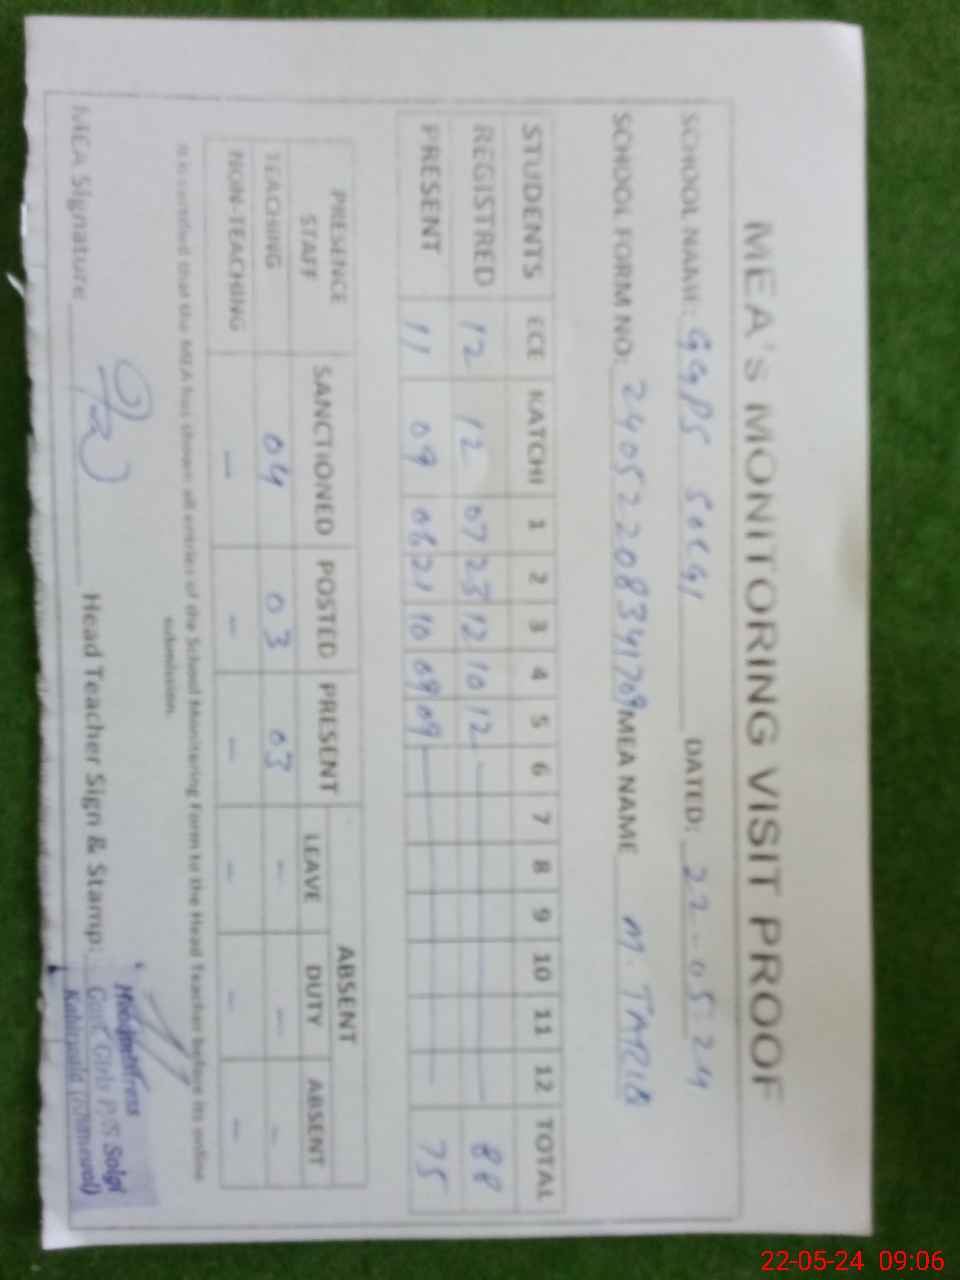 MEA's MONITORING VISIT PROOF
SCHOOL NAME: GGPS SOLGI DATED: 22-05-24
SCHOOL FORM NO: 24052208341709 MEA NAME M. TARIQ
STUDENTS ECE KATCHI 1 2 3 4 5 6 7 8 9 10 11 12 TOTAL
REGISTRED 12 12 07 23 12 10 12 88
PRESENT 11 09 06 21 10 09 09 75
PRESENCE STAFF SANCTIONED POSTED PRESENT ABSENT
LEAVE DUTY ABSENT
TEACHING 04 03 03 - - -
NON-TEACHING - - - - - -
It is certified that the MEA has shown all entries of the School Monitoring Form to the Head Teacher before its online
submission.
MEA Signature Head Teacher Sign & Stamp:
Headmistress
Govt Girls P/S Solgi
22-05-24 09:06